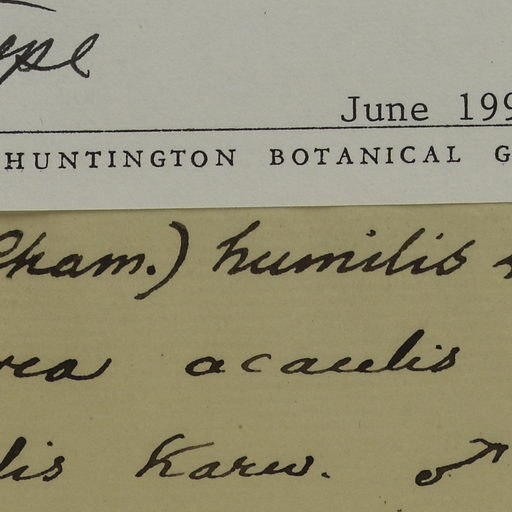 ype
June 199
HUNTINGTON BOTANICAL G
Cham.) humilis
rea acaulis
lis Karw. ♂